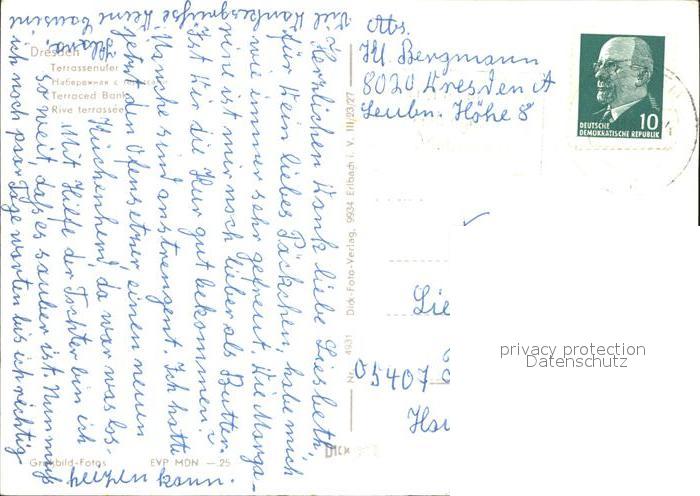 Herzlichen Dank liebe Liesbeth,
für Dein liebes Päckchen, habe mich
wie immer sehr gefreut. Die Marga-
rine ist mir noch lieber als Butter.
Ist Dir die Kur gut bekommen?
Manche sind anstrengent. Ich hatte
jetzt den Ofensetzer einen neuen
Küchenherd, da war was los.
Mit Hilfe der Tochter bin ich
so weit, daß es sauber ist. Nun muß
ich noch paar Tage warten bis ich richtig
heizen kann.
Viel Dankesgrüße Deine Cousine
Dresden
Terrassenufer
Набережная с
Terraced Bank
Rive terrassée
Großbild-Fotos EVP MDN —.25
Nr. 4931 Dick-Foto-Verlag, 9934 Erlbach i. V. III/23/27
DICK
Abs.
Bergmann
8020 Dresden A
Leubn. Höhe 8
10
DEUTSCHE
DEMOKRATISCHE REPUBLIK
Lie
05407
Hau
privacy protection
Datenschutz